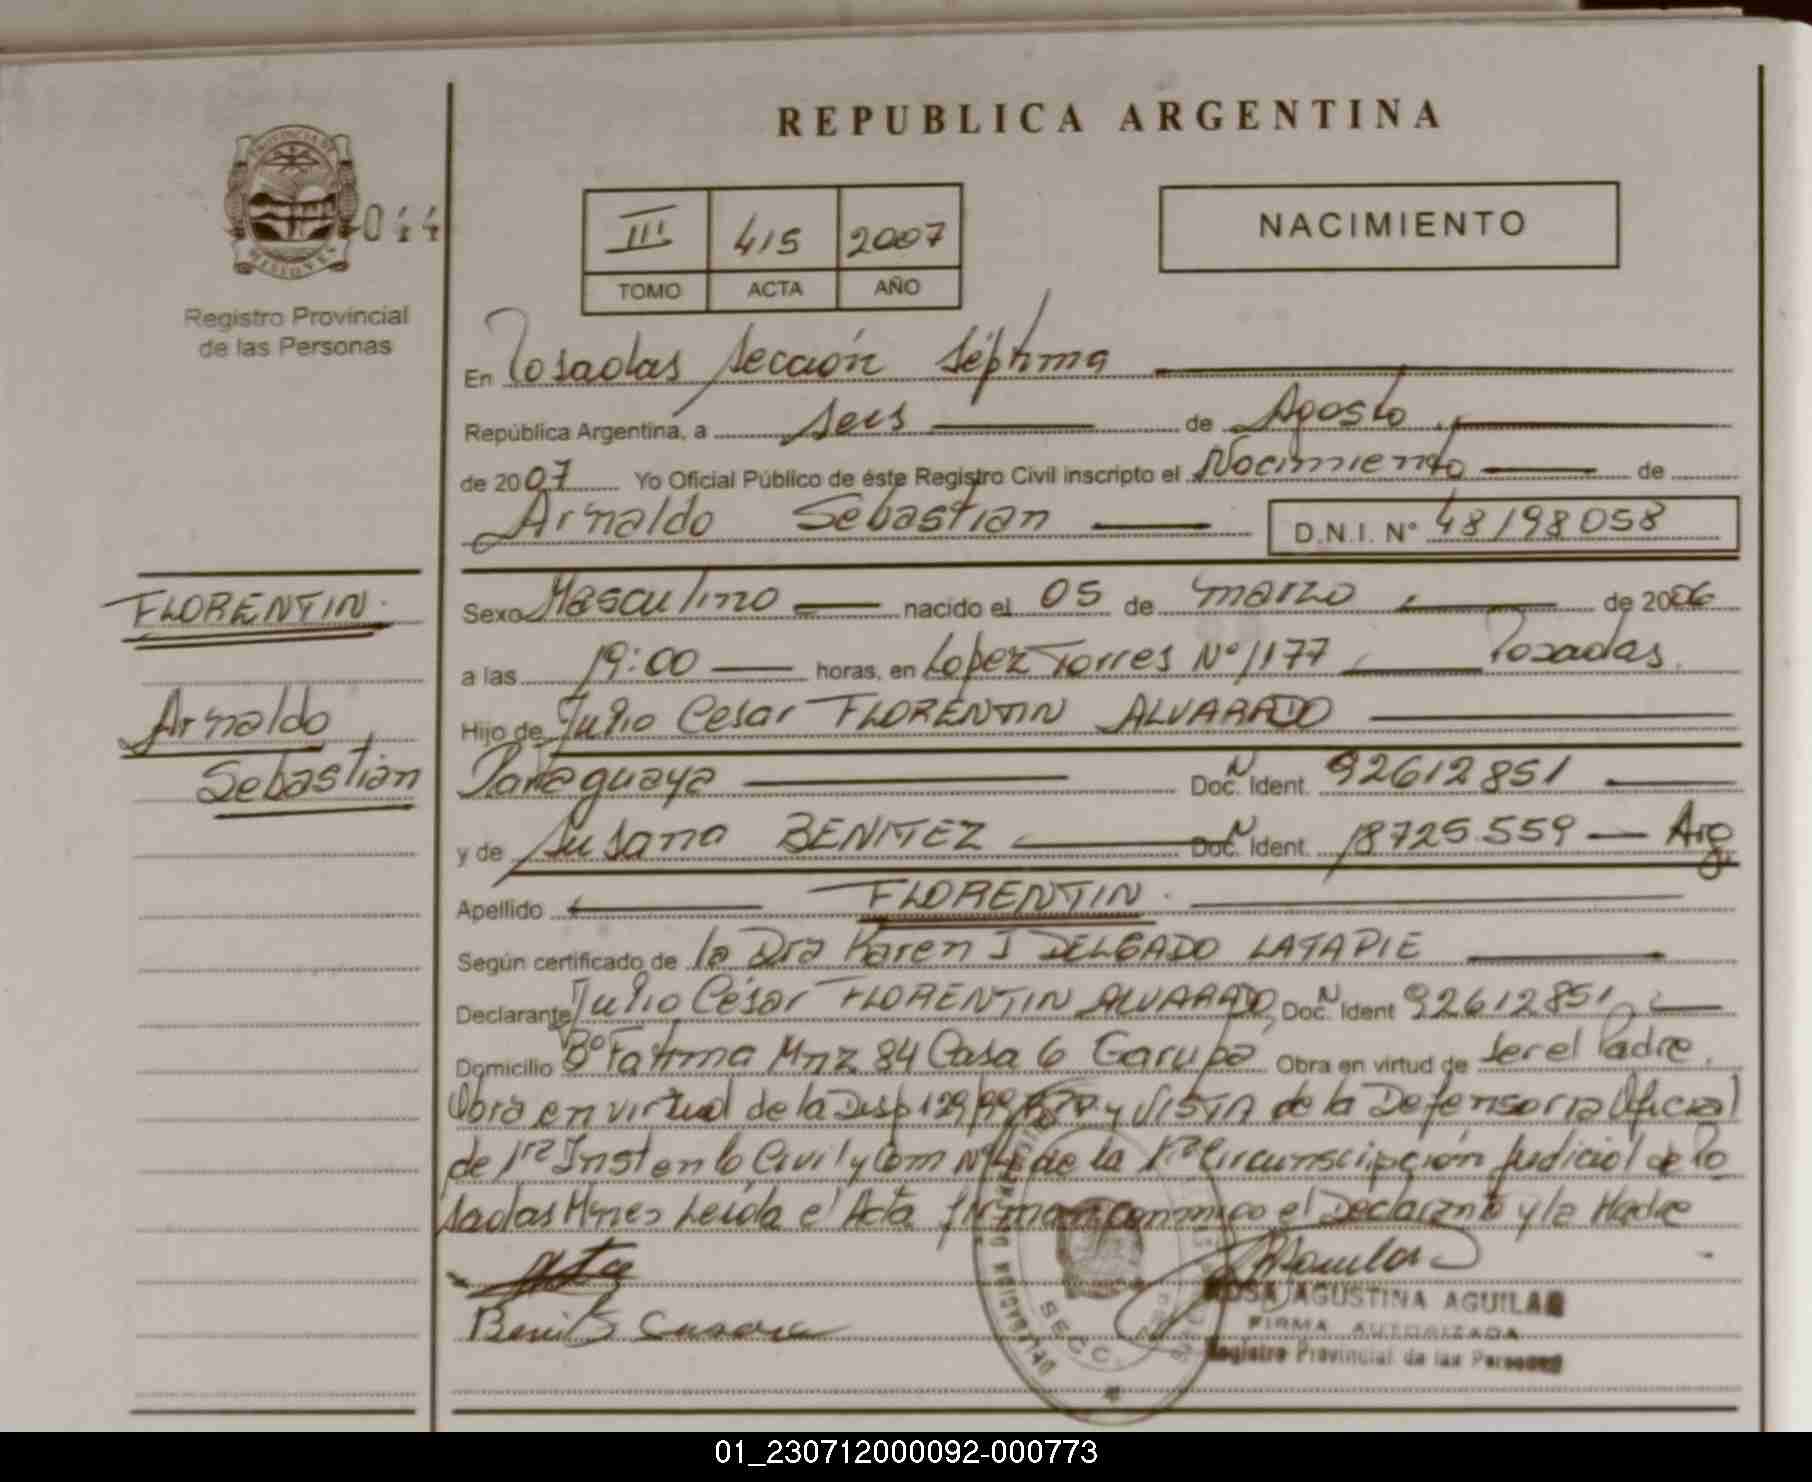 REPUBLICA ARGENTINA
PROVINCIA DE MISIONES
044
III 415 2007
TOMO ACTA AÑO
NACIMIENTO
Registro Provincial
de las Personas
En Posadas Sección Séptima
República Argentina, a seis de Agosto
de 2007 Yo Oficial Público de éste Registro Civil inscripto el Nacimiento de
Arnaldo Sebastian D.N.I. N° 48198058
FLORENTIN.
Arnaldo
Sebastian
Sexo Masculino nacido el 05 de marzo de 2006
a las 19:00 horas, en Lopez Torres N° 1177 Posadas.
Hijo de Julio Cesar FLORENTIN ALVARADO
Paraguaya Doc. N Ident. 92612851
y de Susana BENITEZ Doc. N Ident. 18725559 Arg
Apellido FLORENTIN.
Según certificado de la Dra Karen J DELGADO LATAPIE
Declarante Julio César FLORENTIN ALVARADO, Doc. N Ident 92612851
Domicilio B° Fatima Mnz 84 Casa 6 Garupa Obra en virtud de ser el Padre.
Obra en virtud de la Disp 129/99 y VISTA de la Defensoria Oficial
de 1ra Inst en lo Civil y Com N°4 de la 1ra Circunscipción Judicial de Po
sadas Mnes Leida el Acta firman conmigo el Declarante y la Madre
ROSA AGUSTINA AGUILAR
FIRMA AUTORIZADA
Registro Provincial de las Personas
SECC.
01_230712000092-000773